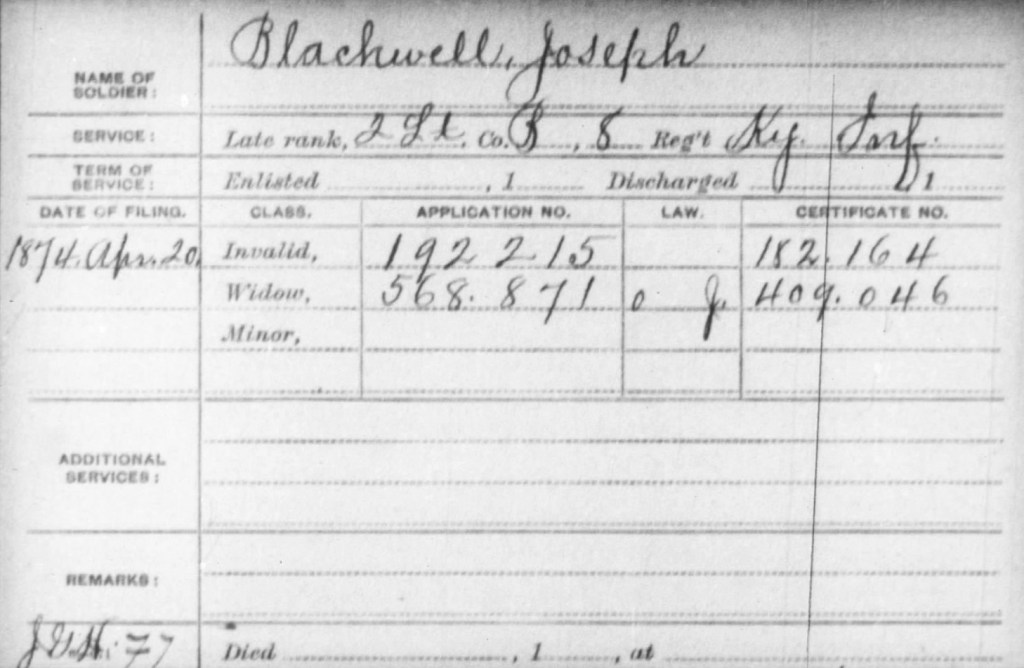 Blackwell, Joseph
NAME OF
SOLDIER:
SERVICE: Late rank, 2 Lt. Co. B, 8 Reg't Ky. Inf.
TERM OF
SERVICE: Enlisted , 1 Discharged , 1
DATE OF FILING. CLASS. APPLICATION NO. LAW. CERTIFICATE NO.
1874. Apr. 20. Invalid, 192 215 182.164
Widow, 568.871 409.046
Minor,
ADDITIONAL
SERVICES:
REMARKS:
Died , 1 , at